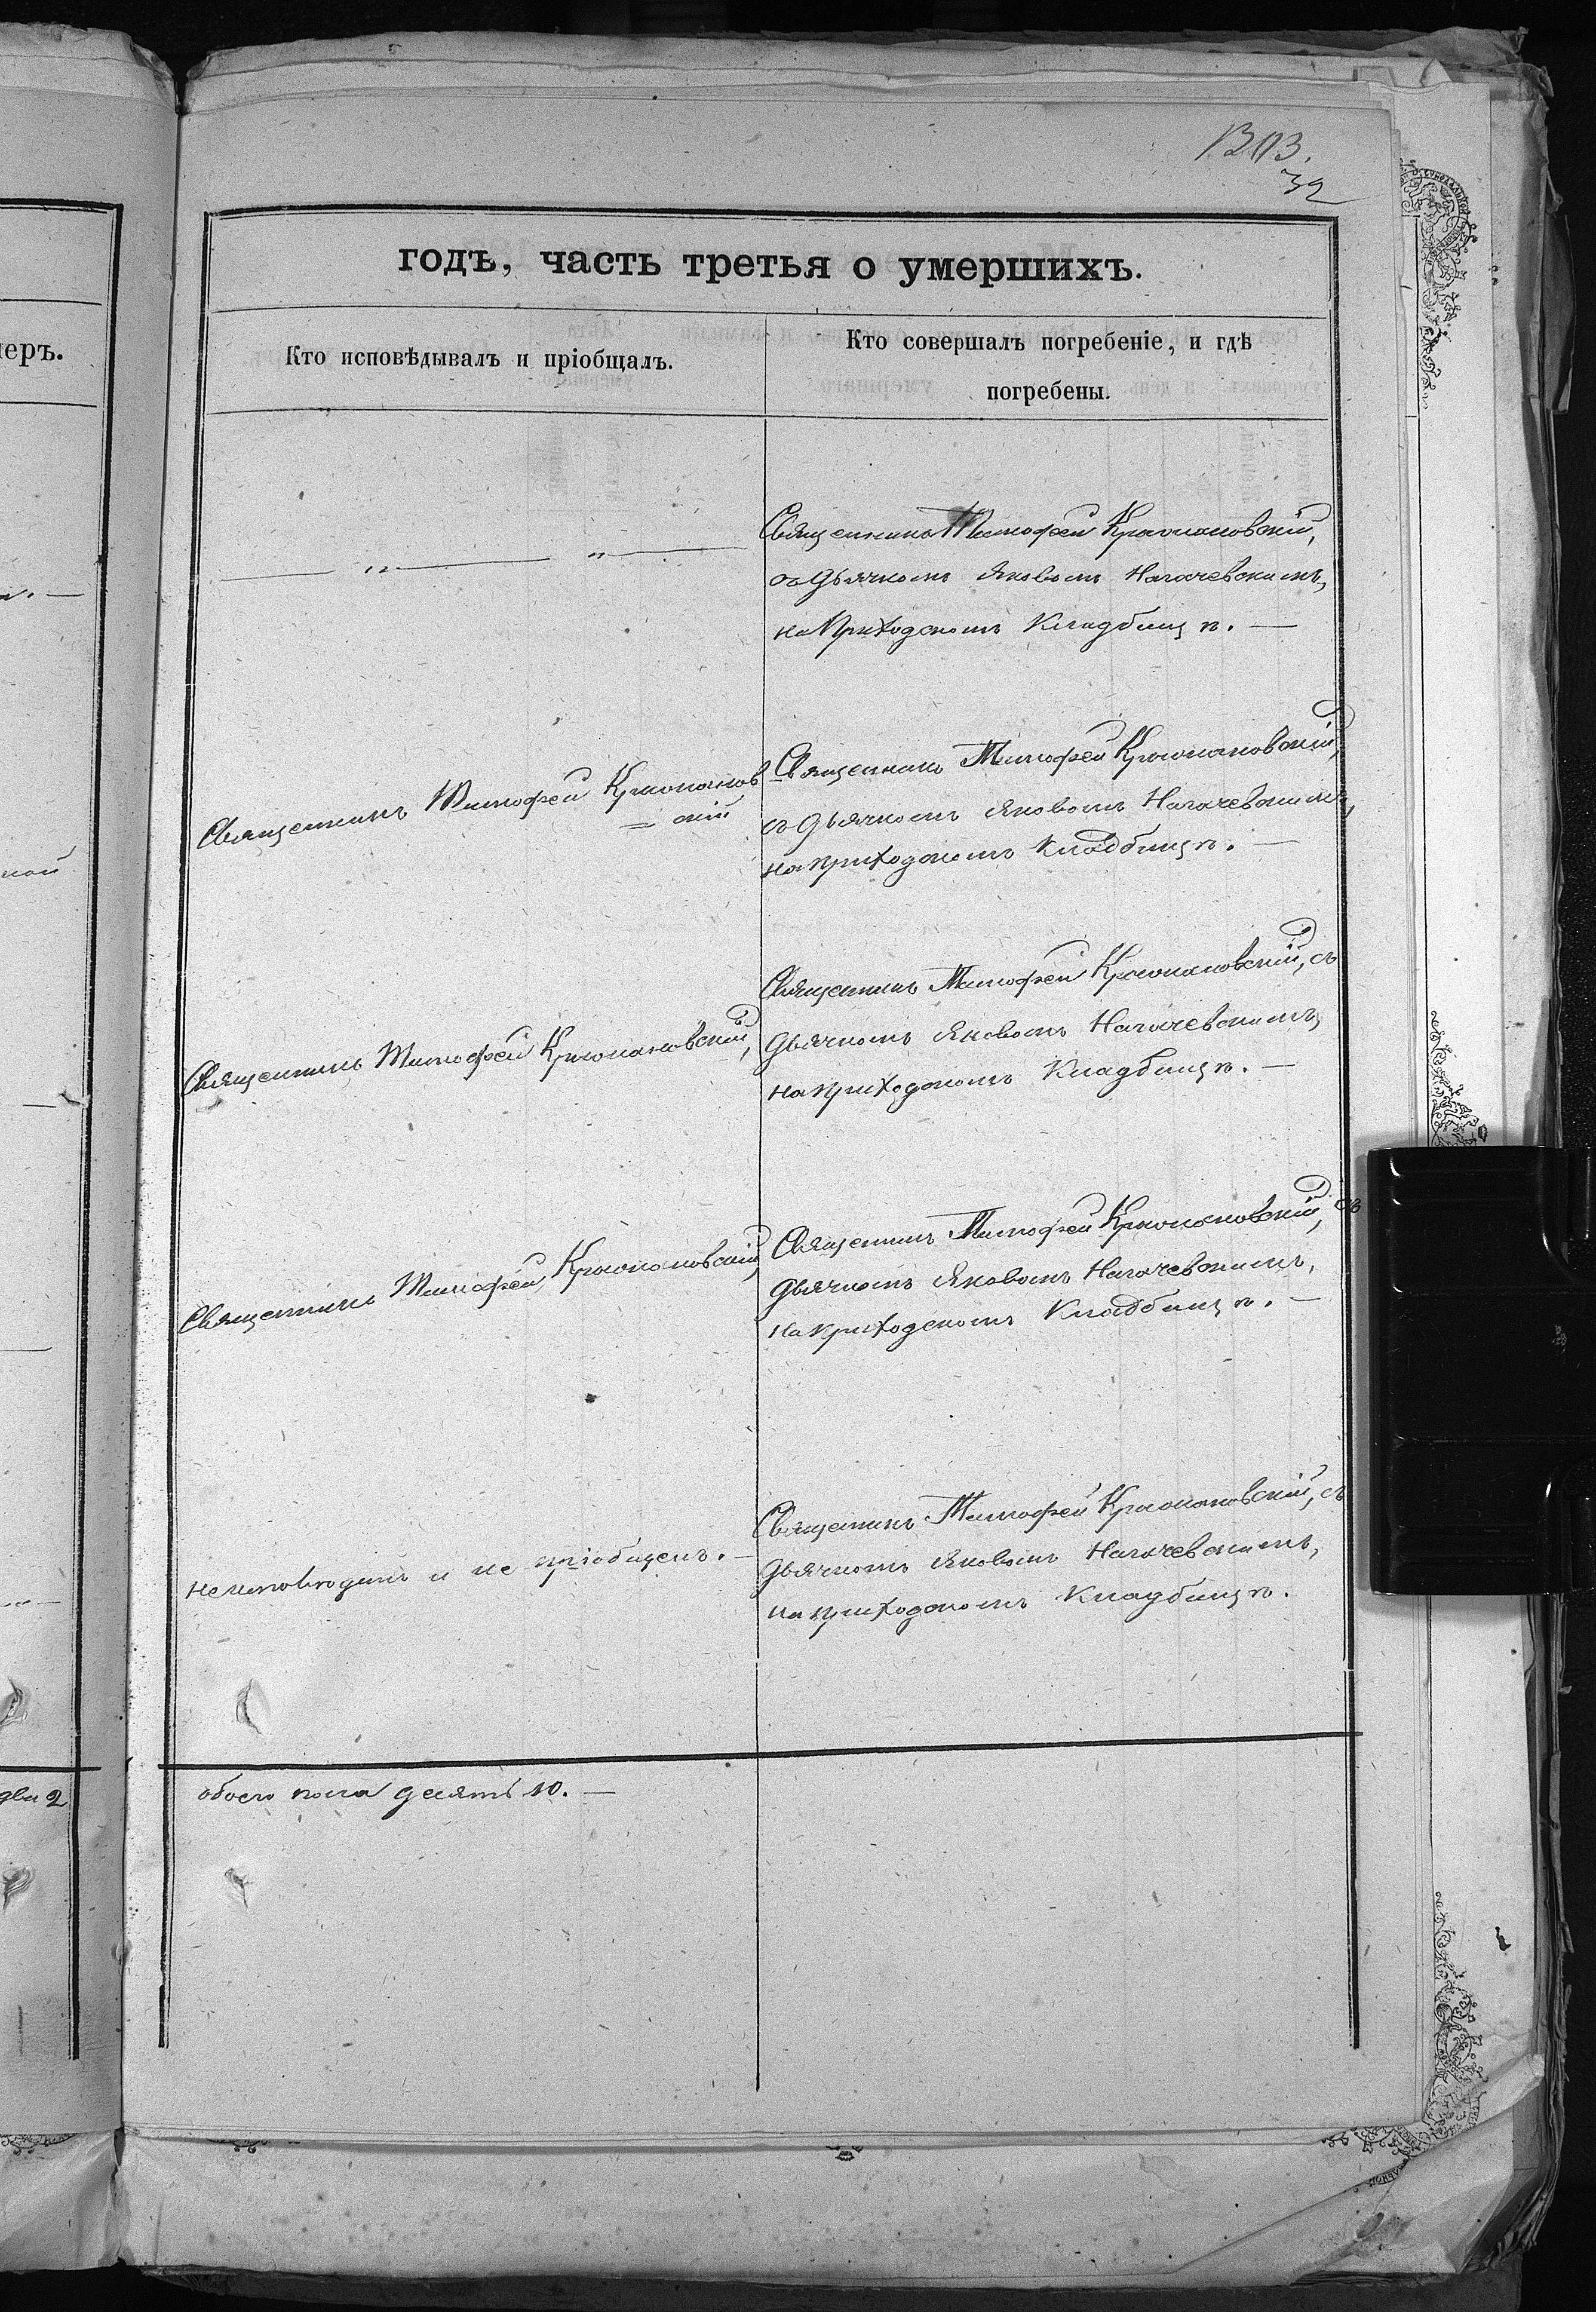 32
годъ, часть третья о умершихъ.
Кто исповѣдывалъ и пріобщалъ.
Кто совершалъ погребеніе, и гдѣ
погребены.
меръ.
— „ — „ —
Священникъ Тимофей Крыжановскій,
съ Дьячкомъ Яковомъ Нагачевскимъ,
на Приходскомъ Кладбищѣ. —
Священникъ Тимофей Крыжанов
= скій
Священникъ Тимофей Крыжановскій,
съ Дьячкомъ Яковомъ Нагачевскимъ,
на приходскомъ Кладбищѣ. —
Священникъ Тимофей Крыжановскій,
Священникъ Тимофей Крыжановскій, съ
Дьячкомъ Яковомъ Нагачевскимъ,
на приходскомъ Кладбищѣ. —
Священникъ Тимофей Крыжановскій,
Священникъ Тимофей Крыжановскій, съ
Дьячкомъ Яковомъ Нагачевскимъ,
на приходскомъ Кладбищѣ. —
не исповѣданъ и не пріобщенъ. —
Священникъ Тимофей Крыжановскій, съ
Дьячкомъ Яковомъ Нагачевскимъ,
на приходскомъ Кладбищѣ.
два 2
обоего пола десять 10. —